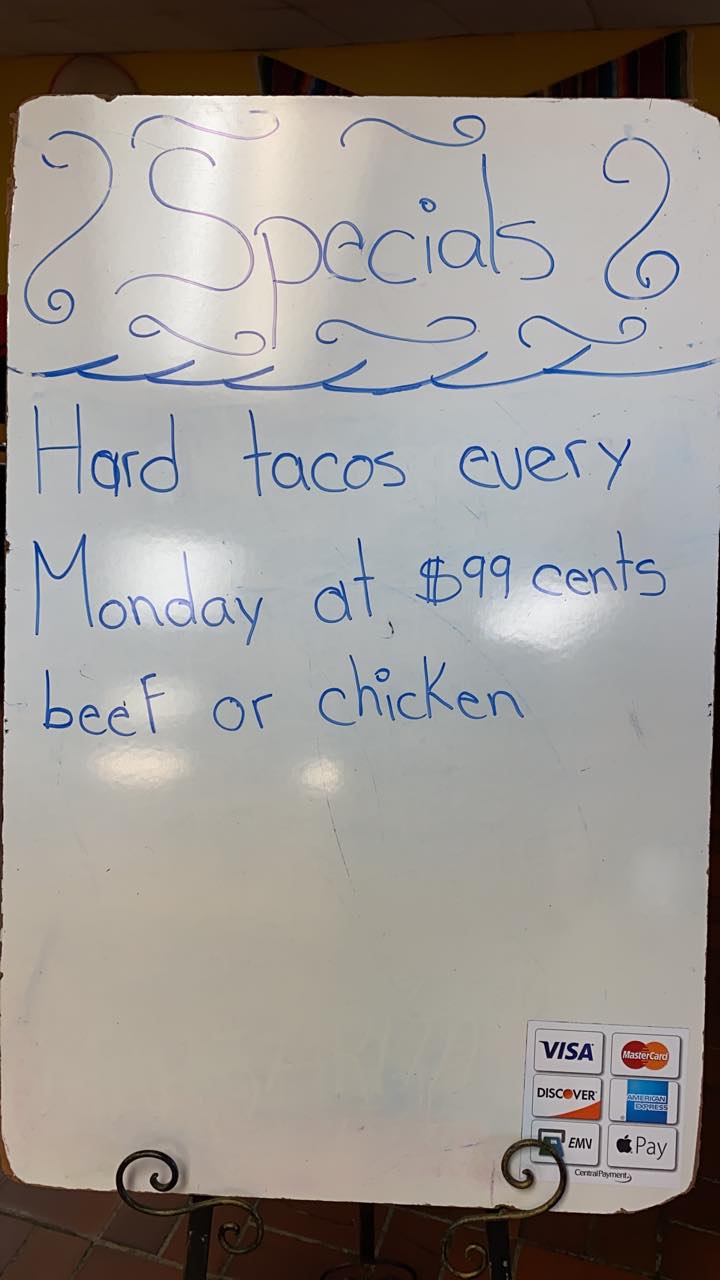 Specials
Hard tacos every
Monday at $99 cents
beef or chicken
VISA
MasterCard
DISCOVER
AMERICAN EXPRESS
EMV
Pay
CentralPayment